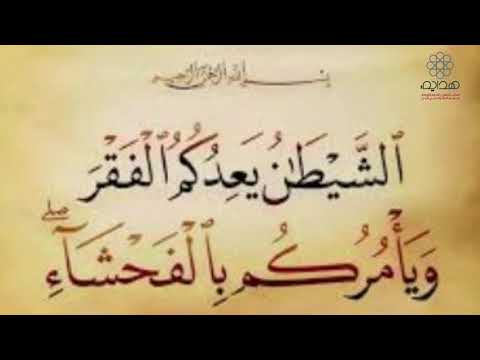 بسم الله الرحمن الرحيم
هداية
ٱلشَّيْطَٰنُ يَعِدُكُمُ ٱلْفَقْرَ
وَيَأْمُرُكُم بِٱلْفَحْشَآءِ ۖ